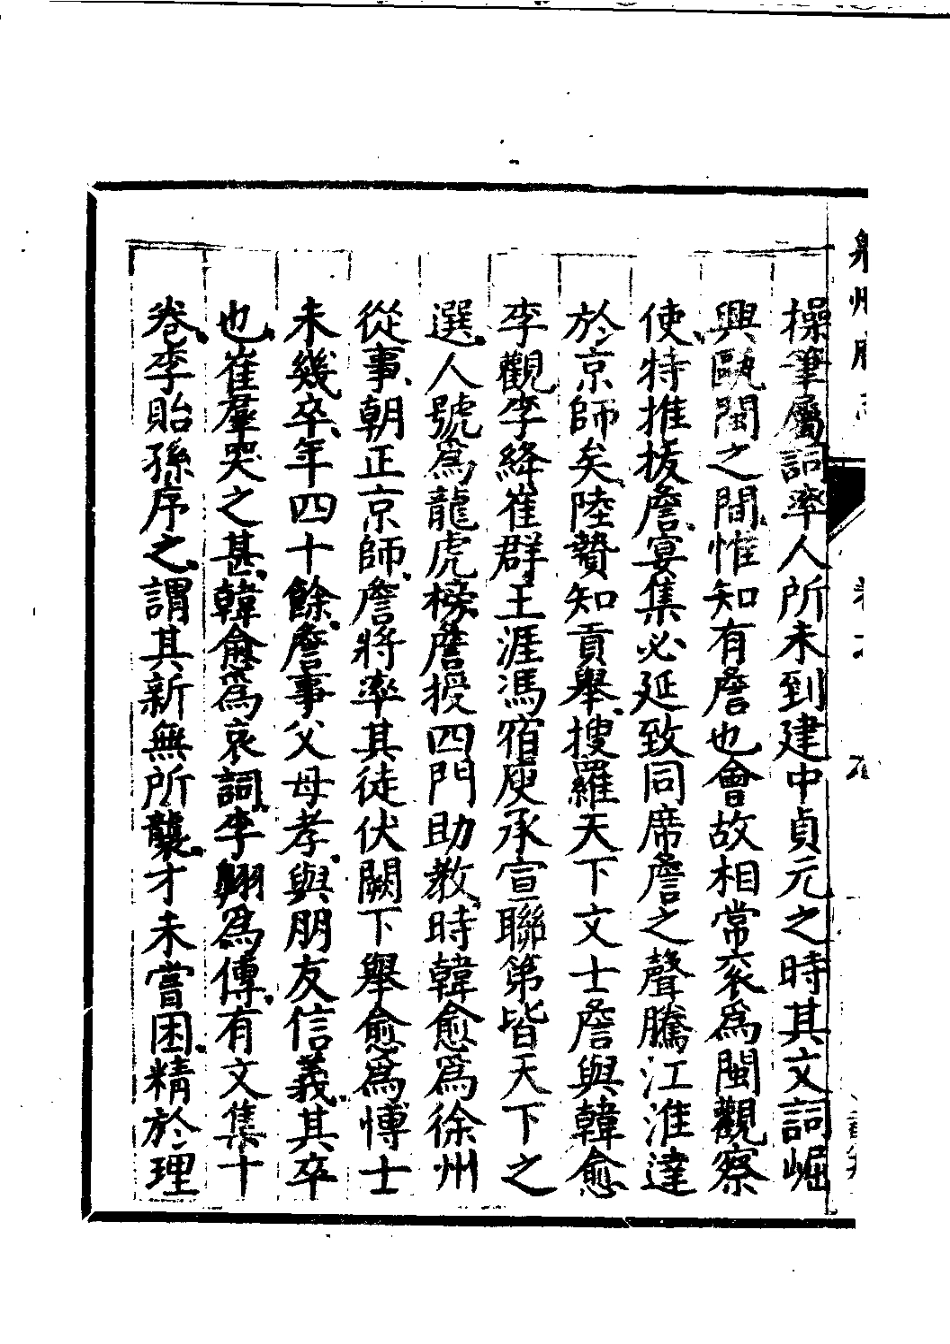 操筆屬詞率人所未到建中貞元之時其文詞崛
興甌閩之間惟知有詹也會故相常衮為閩觀察
使特推拔詹宴集必延致同席詹之聲騰江淮達
於京師矣陸贄知貢舉搜羅天下文士詹與韓愈
李觀李絳崔群王涯馮宿庾承宣聯第皆天下之
選人號為龍虎榜詹授四門助教時韓愈為徐州
從事朝正京師詹將率其徒伏闕下舉愈為博士
未幾卒年四十餘詹事父母孝與朋友信義其卒
也崔羣哭之甚韓愈為哀詞李翱為傳有文集十
卷李貽孫序之謂其新無所襲才未嘗困精於理